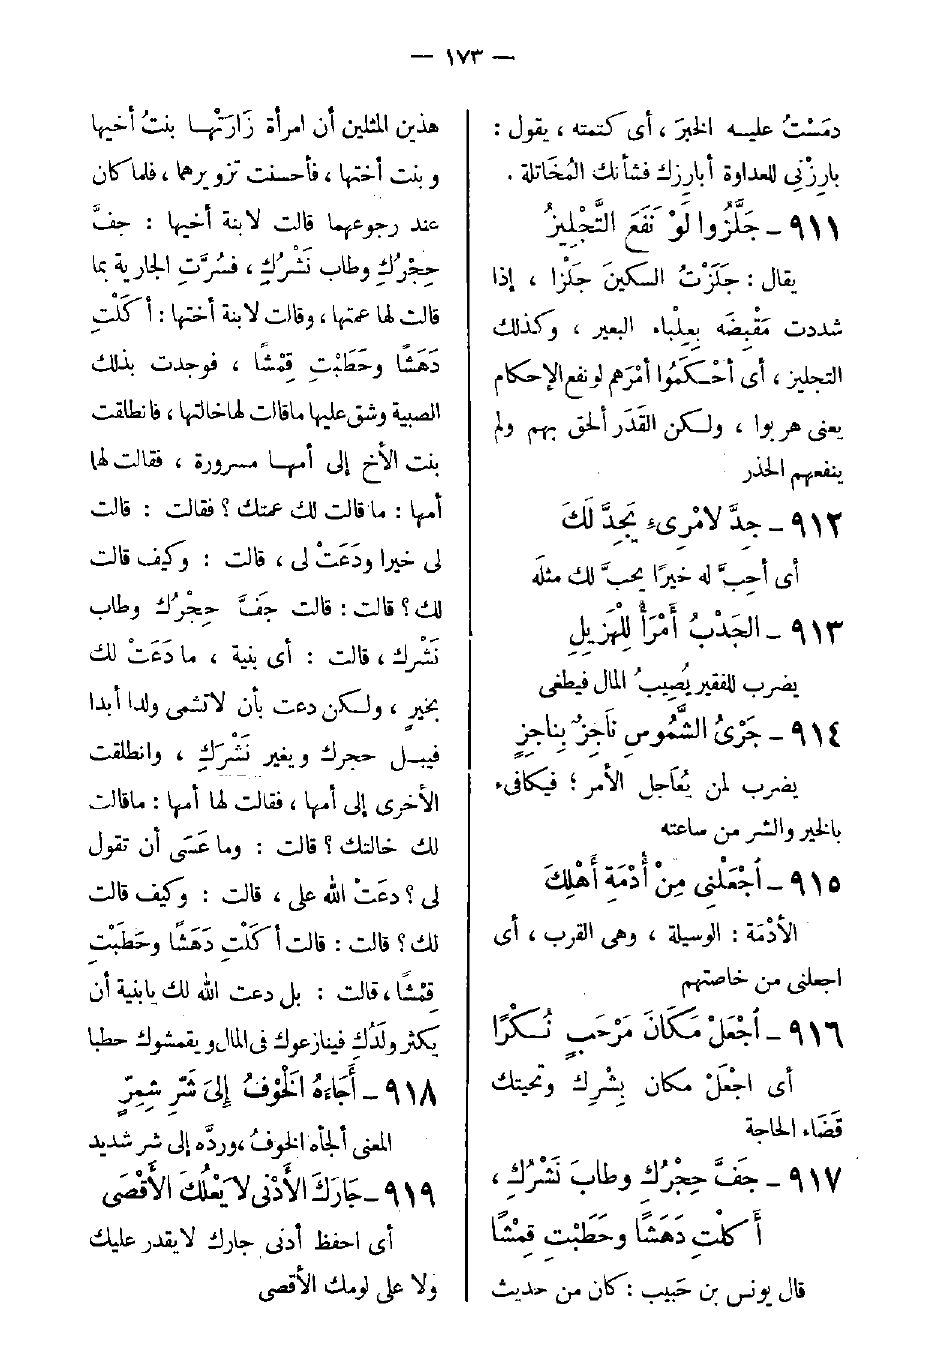 — ١٧٣ —
دمَسْتُ عليه الخبرَ ، أى كتمته ، يقول :
بارِزْنِى للعداوة أبارِزك فشأنك المُخَاتلة .
٩١١ – جَلَّزُوا لَوْ نَفَعَ التَّجْلِيزُ
يقال : جَلَزْتُ السكينَ جَلْزا ، إذا
شددت مَقْبِضَه بِعِلْباء البعير ، وكذلك
التجليز ، أى أحْكَمُوا أمْرَهم لو نفع الإحكام
يعنى هربوا ، ولكن القَدَر ألحق بهم ولم
ينفعهم الحذر
٩١٢ – جِدَّ لامْرِىءٍ يَجِدَّ لَكَ
أى أحِبَّ له خيرًا يحبَّ لك مثلَه
٩١٣ – الجَدْبُ أَمْرَأُ لِلْهَزِيلِ
يضرب للفقير يُصِيبُ المال فيطغى
٩١٤ – جَرْىُ الشَّمُوسِ نَاجِزٌ بِناجِزٍ
يضرب لمن يُعَاجل الأمر ؛ فيكافىء
بالخير والشر من ساعته
٩١٥ – اُجْعَلْنِى مِنْ أُدْمَةِ أَهْلِكَ
الأدْمَة : الوسيلة ، وهى القرب ، أى
اجعلنى من خاصتهم
٩١٦ – اُجْعَلْ مَكَانَ مَرْحَبٍ نُكْرًا
أى اجعَلْ مكان بِشْرِك وتحيتك
قَضَاء الحاجة
٩١٧ – جَفَّ حِجْرُكِ وطابَ نَشْرُكِ ،
أَكَلْتِ دَهَشًا وحَطَبْتِ قِمْشًا
قال يونس بن حَبيب : كان من حديث
هذين المثلين أن امرأة زَارَتْهَا بنتُ أخيها
وبنت أختها ، فأحسنت تزويرهما ، فلما كان
عند رجوعهما قالت لابنة أخيها : جفَّ
حِجْرُكِ وطاب نَشْرُكِ ، فسُرَّتِ الجارية بما
قالت لها عمتها ، وقالت لابنة أختها : أكَلْتِ
دَهَشًا وحَطَبْتِ قِمْشًا ، فوجدت بذلك
الصبية وشق عليها ماقالت لها خالتها ، فانطلقت
بنت الأخ إلى أمها مسرورة ، فقالت لها
أمها : ما قالت لك عمتك ؟ فقالت : قالت
لى خيرا ودَعَتْ لى ، قالت : وكيف قالت
لك ؟ قالت : قالت جَفَّ حِجْرُك وطاب
نَشْرك ، قالت : أى بنية ، ما دَعَتْ لك
بخيرٍ ، ولكن دعت بأن لاتشمى ولدا أبدا
فيبل حجرك ويغير نَشْرَكِ ، وانطلقت
الأخرى إلى أمها ، فقالت لها أمها : ماقالت
لك خالتك ؟ قالت : وما عَسَى أن تقول
لى ؟ دعَتْ الله على ، قالت : وكيف قالت
لك ؟ قالت : قالت أكَلْتِ دَهَشًا وحَطَبْتِ
قِمْشًا ، قالت : بل دعت الله لك يابنية أن
يكثر ولَدُكِ فينازعوك فى المال ويقمشوك حطبا
٩١٨ – أَجَاءَهُ الْخَوْفُ إِلَى شَرٍّ شِمِرٍّ
المعنى ألجأه الخوفُ ، وردَّه إلى شرٍ شديد
٩١٩ – جَارَكَ الأَدْنى لاَ يَعْلُكَ الأَقْصَى
أى احفظ أدنى جارك لا يقدر عليك
ولا على لومك الأقصى